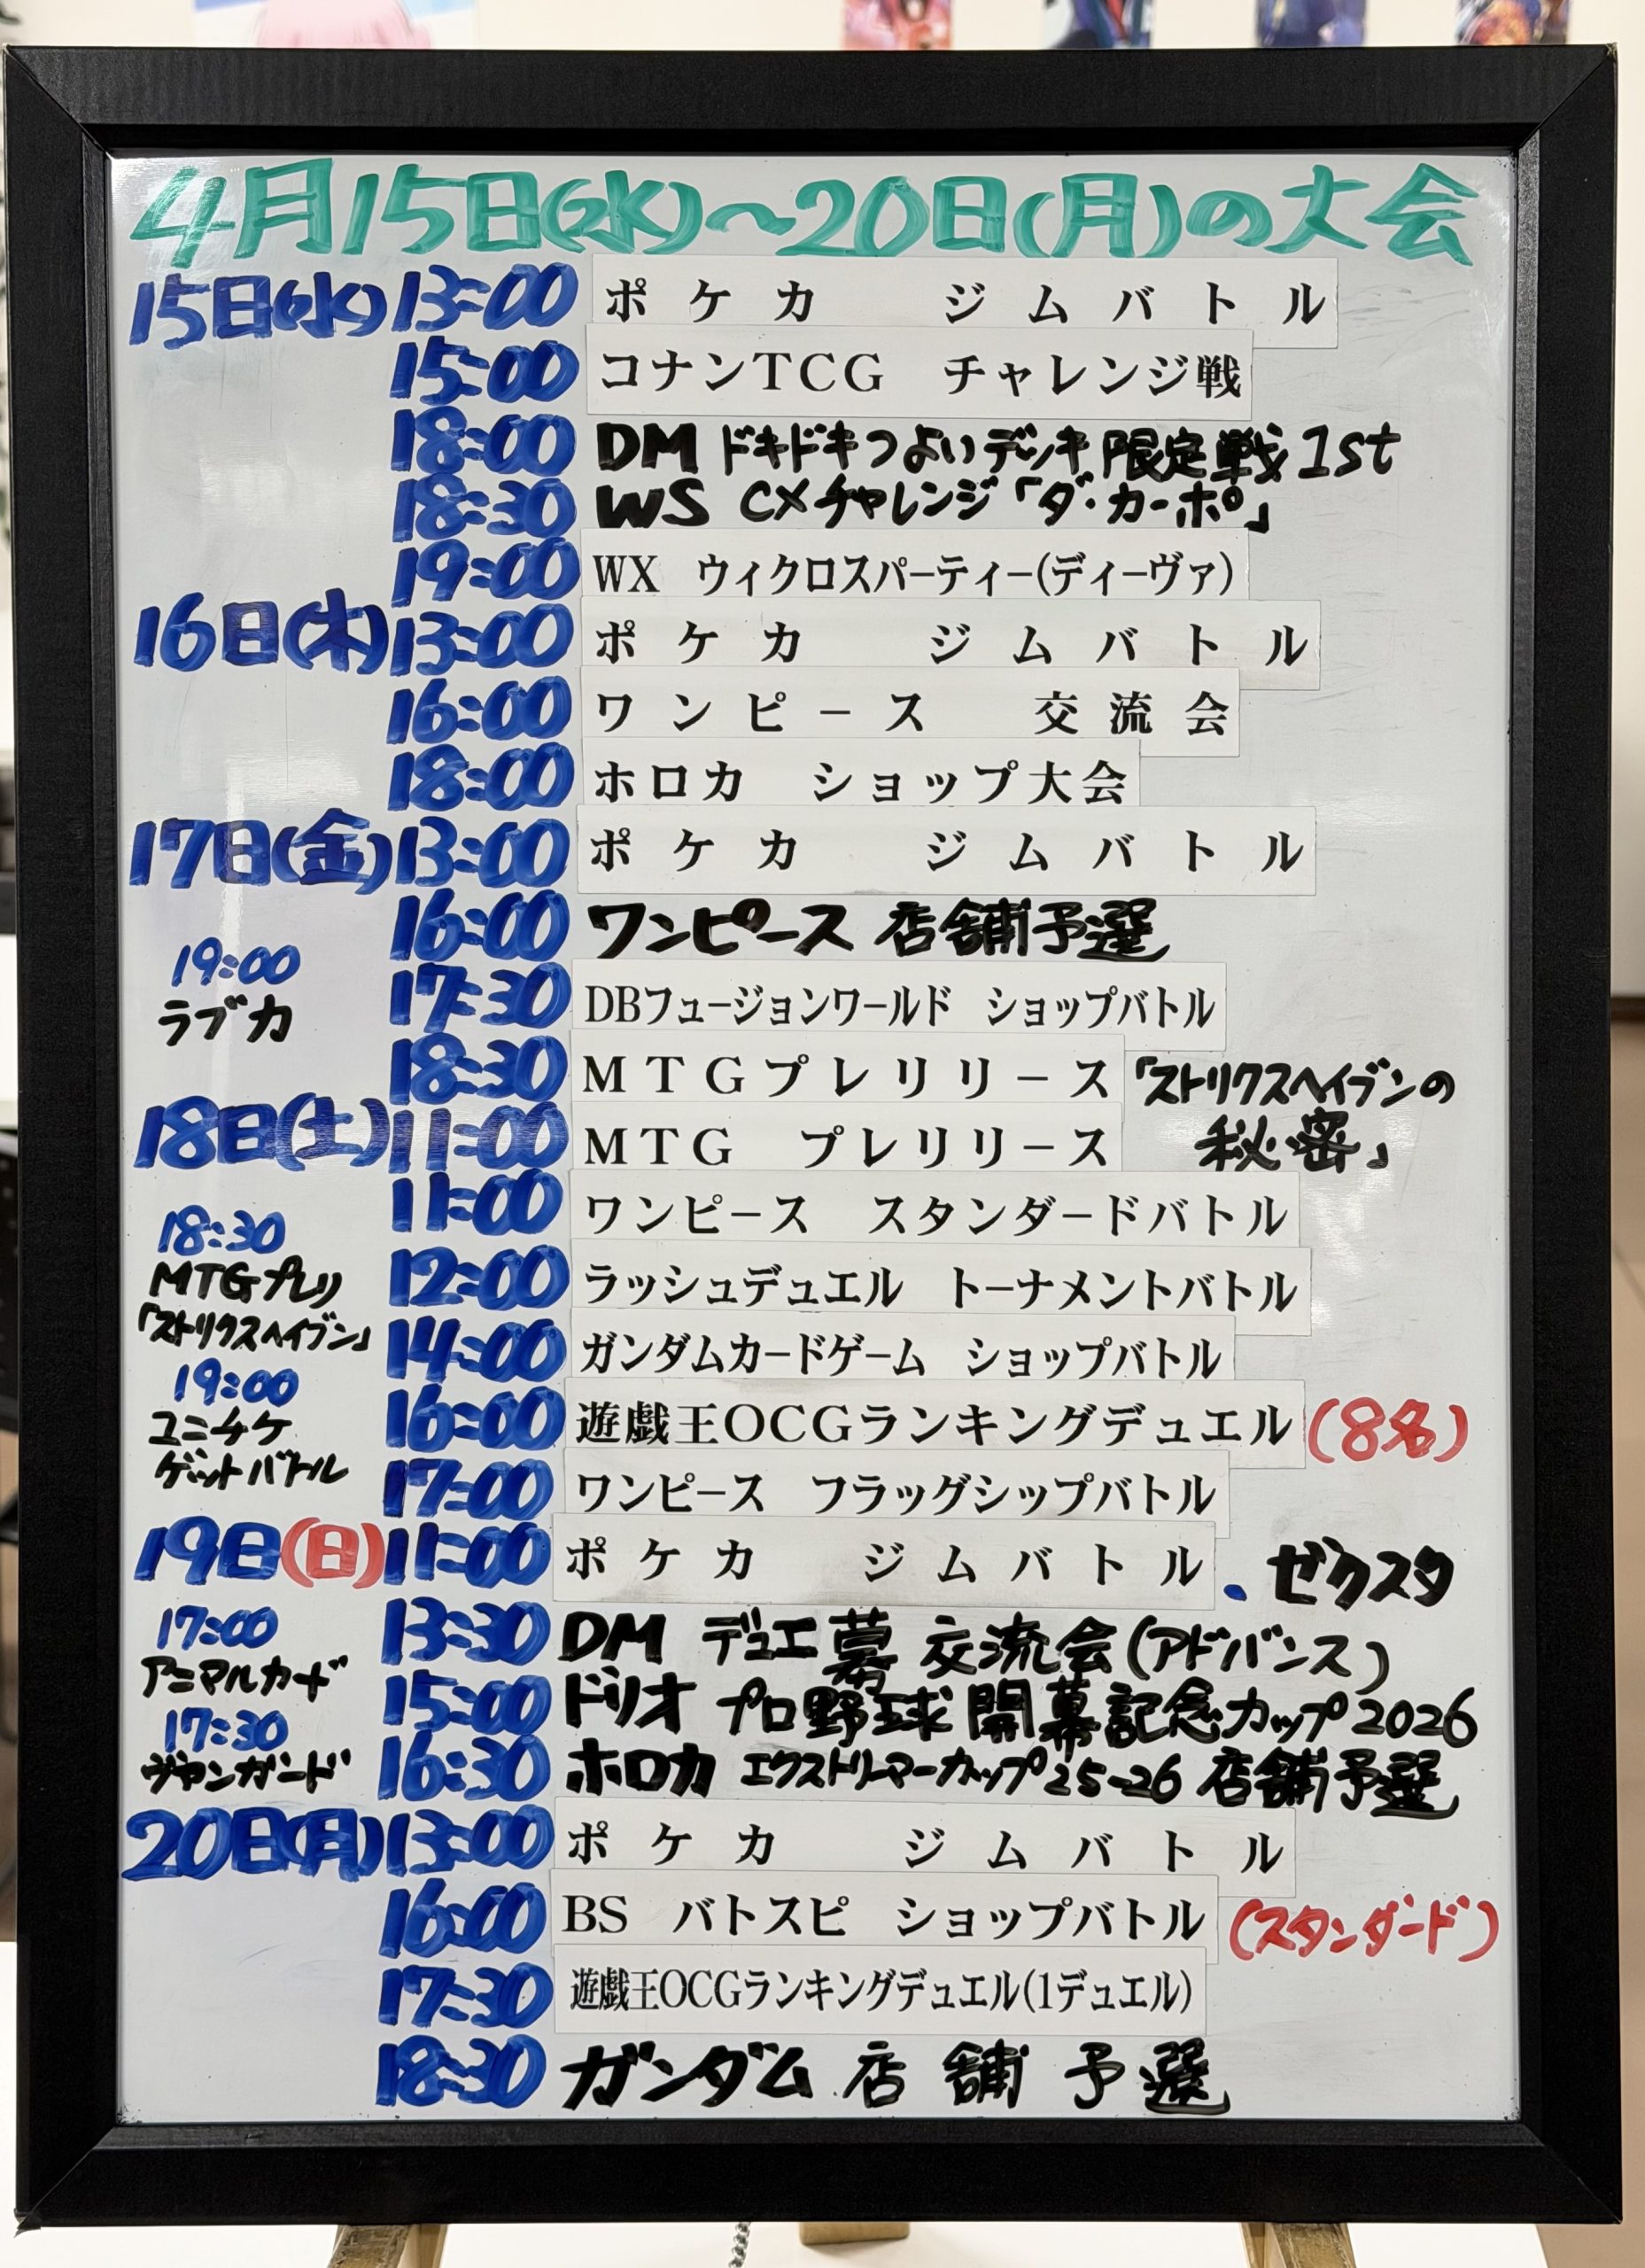 4月15日(水)〜20日(月)の大会
15日(水) 13:00 ポケカ ジムバトル
15:00 コナンTCG チャレンジ戦
18:00 DM ドキドキつよいデッキ限定戦1st
18:30 WS CXチャレンジ「ダ・カーポ」
19:00 WX ウィクロスパーティー(ディーヴァ)
16日(木) 13:00 ポケカ ジムバトル
16:00 ワンピース 交流会
18:00 ホロカ ショップ大会
17日(金) 13:00 ポケカ ジムバトル
16:00 ワンピース 店舗予選
17:30 DBフュージョンワールド ショップバトル
18:30 MTGプレリリース「ストリクスヘイヴンの
秘密」
19:00
ラブカ
18日(土) 11:00 MTG プレリリース
11:00 ワンピース スタンダードバトル
12:00 ラッシュデュエル トーナメントバトル
14:00 ガンダムカードゲーム ショップバトル
16:00 遊戯王OCGランキングデュエル(8名)
17:00 ワンピース フラッグシップバトル
18:30
MTGプレリ
「ストリクスヘイブン」
19:00
ユニチケ
ゲットバトル
19日(日) 11:00 ポケカ ジムバトル . ゼクスタ
13:30 DM デュエ幕 交流会(アドバンス)
15:00 ドリオ プロ野球開幕記念カップ2026
16:30 ホロカ エクストリーマーカップ25-26 店舗予選
17:00
アニマルカード
17:30
ヴァンガード
20日(月) 13:00 ポケカ ジムバトル
16:00 BS バトスピ ショップバトル (スタンダード)
17:30 遊戯王OCGランキングデュエル(1デュエル)
18:30 ガンダム 店舗予選